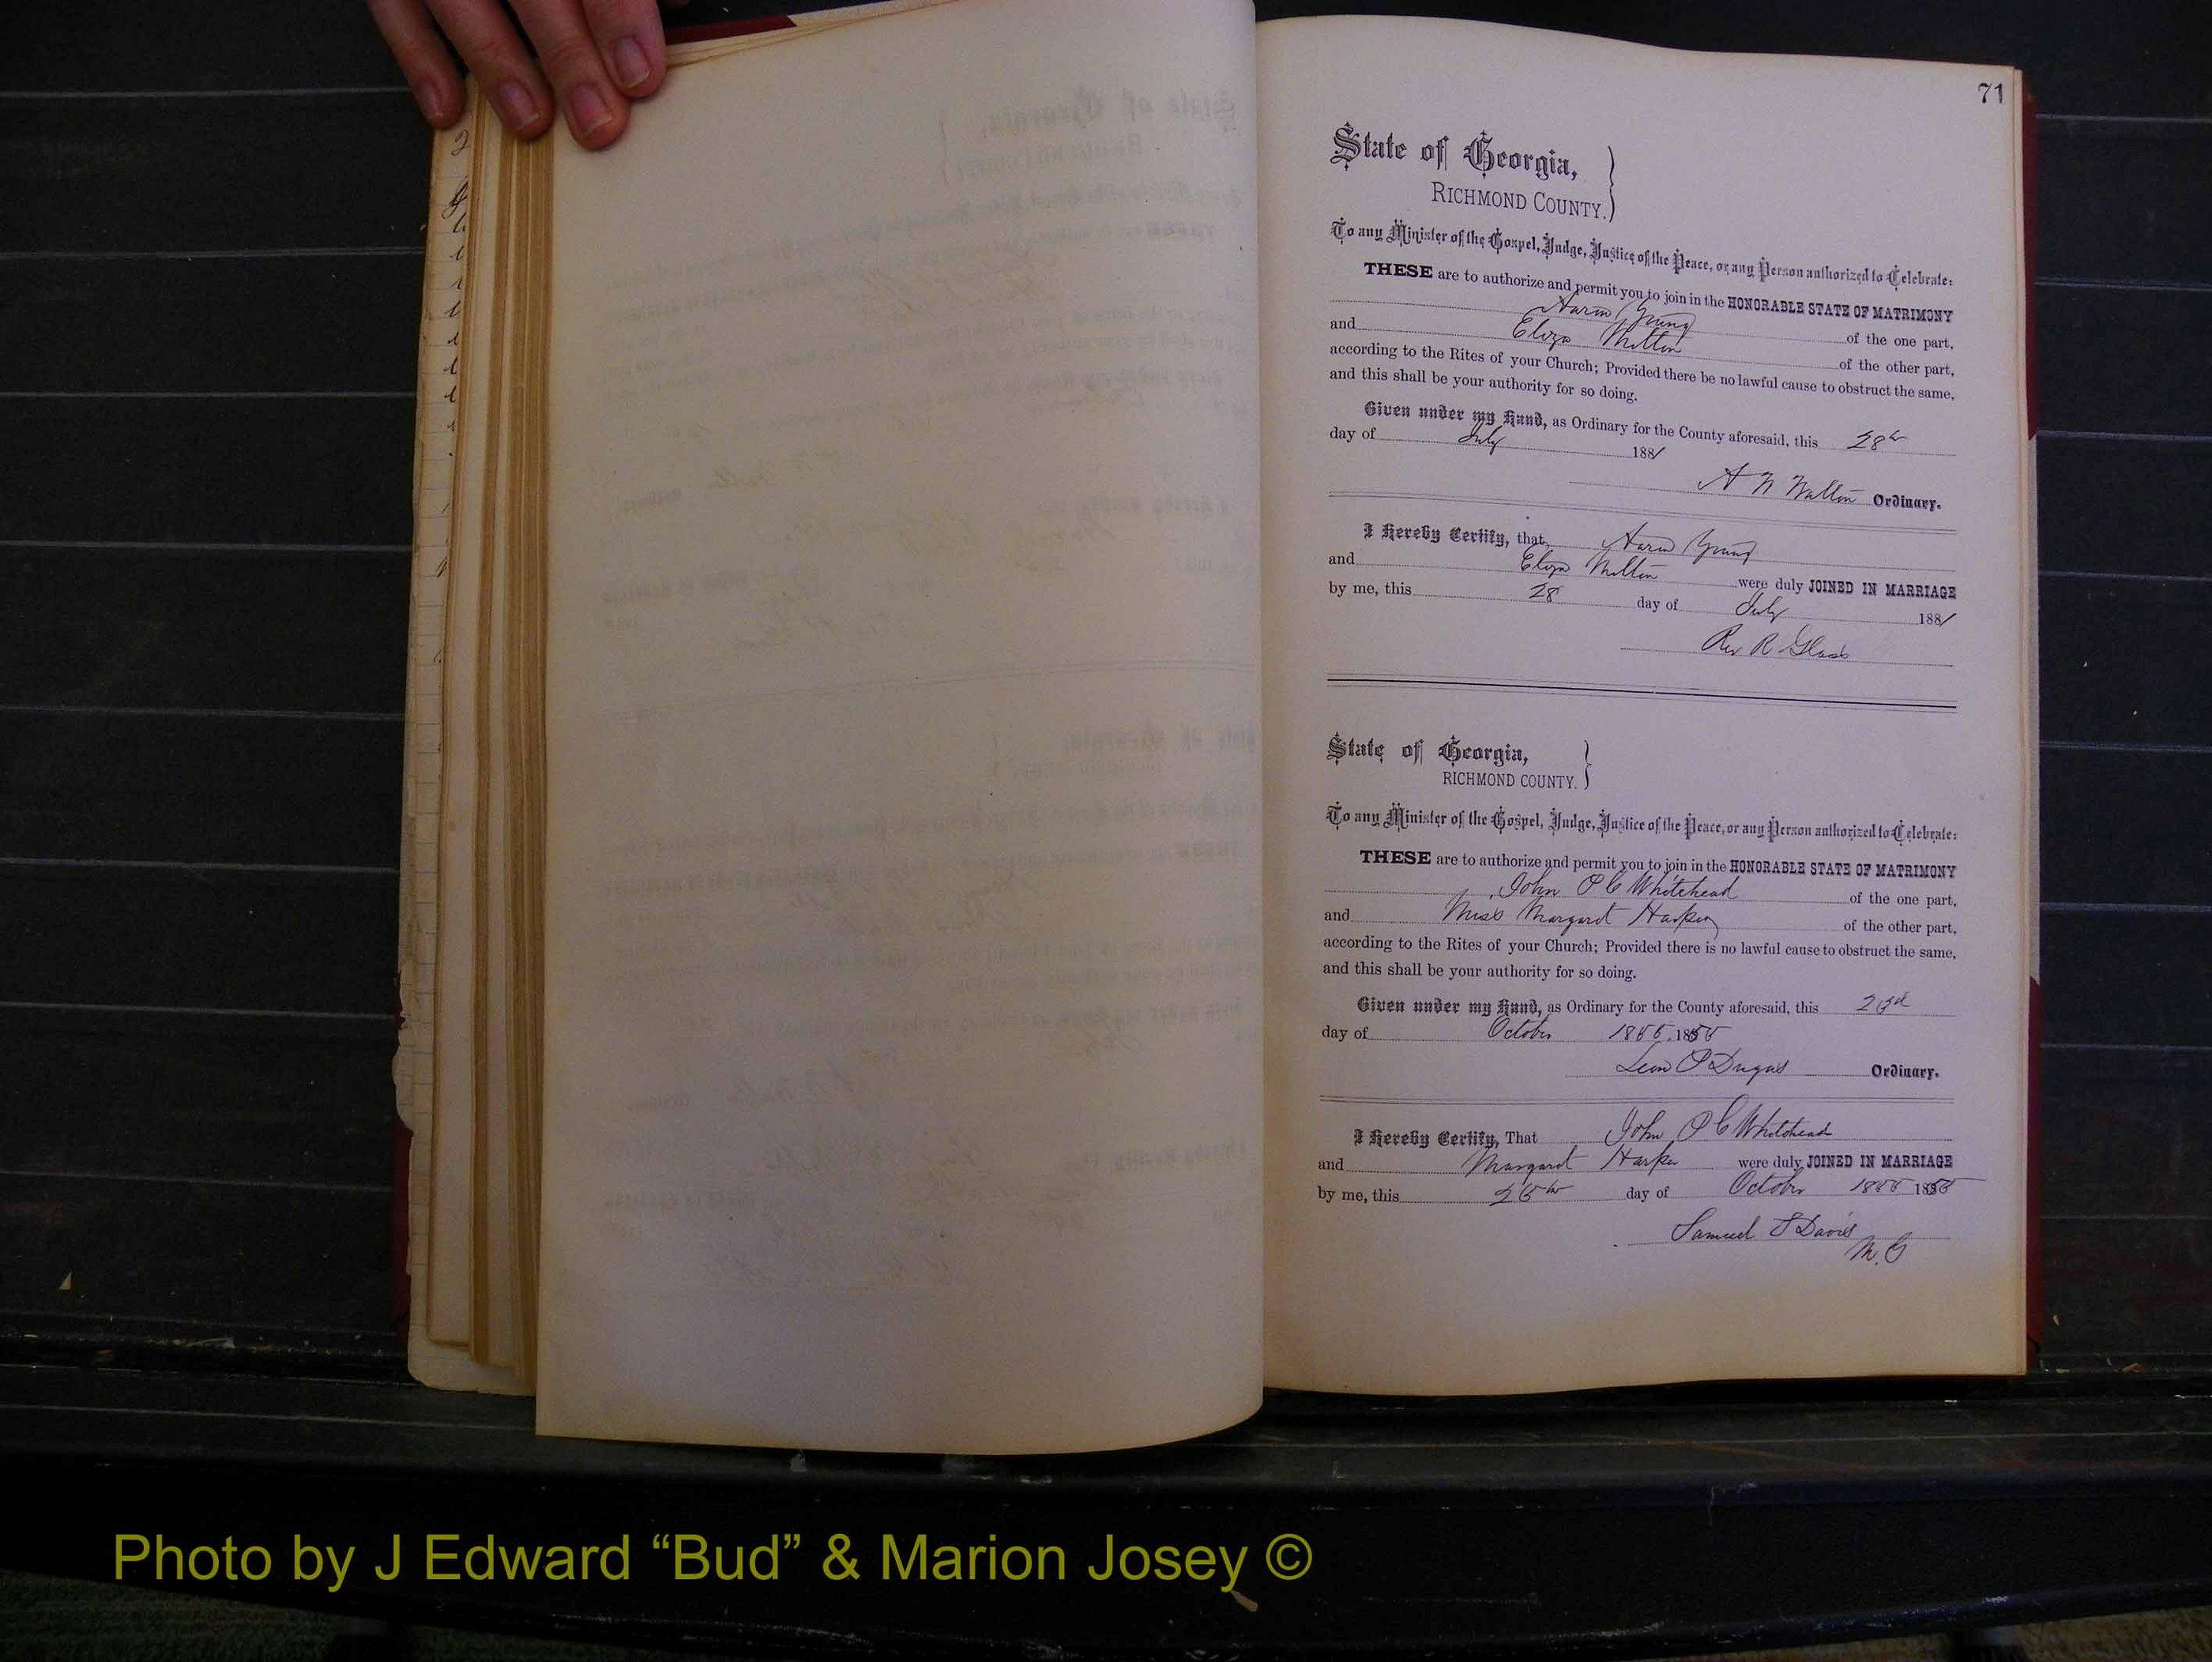 71
State of Georgia,
RICHMOND COUNTY.
To any Minister of the Gospel, Judge, Justice of the Peace, or any Person authorized to Celebrate:
THESE are to authorize and permit you to join in the HONORABLE STATE OF MATRIMONY
Aaron Young of the one part,
and Eliza Milton of the other part,
according to the Rites of your Church; Provided there be no lawful cause to obstruct the same,
and this shall be your authority for so doing.
Given under my Hand, as Ordinary for the County aforesaid, this 28th
day of July 1881
A N Walton Ordinary.
I Hereby Certify, that Aaron Young
and Eliza Milton were duly JOINED IN MARRIAGE
by me, this 28 day of July 1881
Rev R Glass
State of Georgia,
RICHMOND COUNTY.
To any Minister of the Gospel, Judge, Justice of the Peace, or any Person authorized to Celebrate:
THESE are to authorize and permit you to join in the HONORABLE STATE OF MATRIMONY
John P C Whitehead of the one part,
and Miss Margaret Harper of the other part,
according to the Rites of your Church; Provided there is no lawful cause to obstruct the same,
and this shall be your authority for so doing.
Given under my Hand, as Ordinary for the County aforesaid, this
day of October
Leon P Dugas Ordinary.
I Hereby Certify, That John P C Whitehead
and Margaret Harper were duly JOINED IN MARRIAGE
by me, this day of October
Samuel S Davis
M. G
Photo by J Edward “Bud” & Marion Josey ©